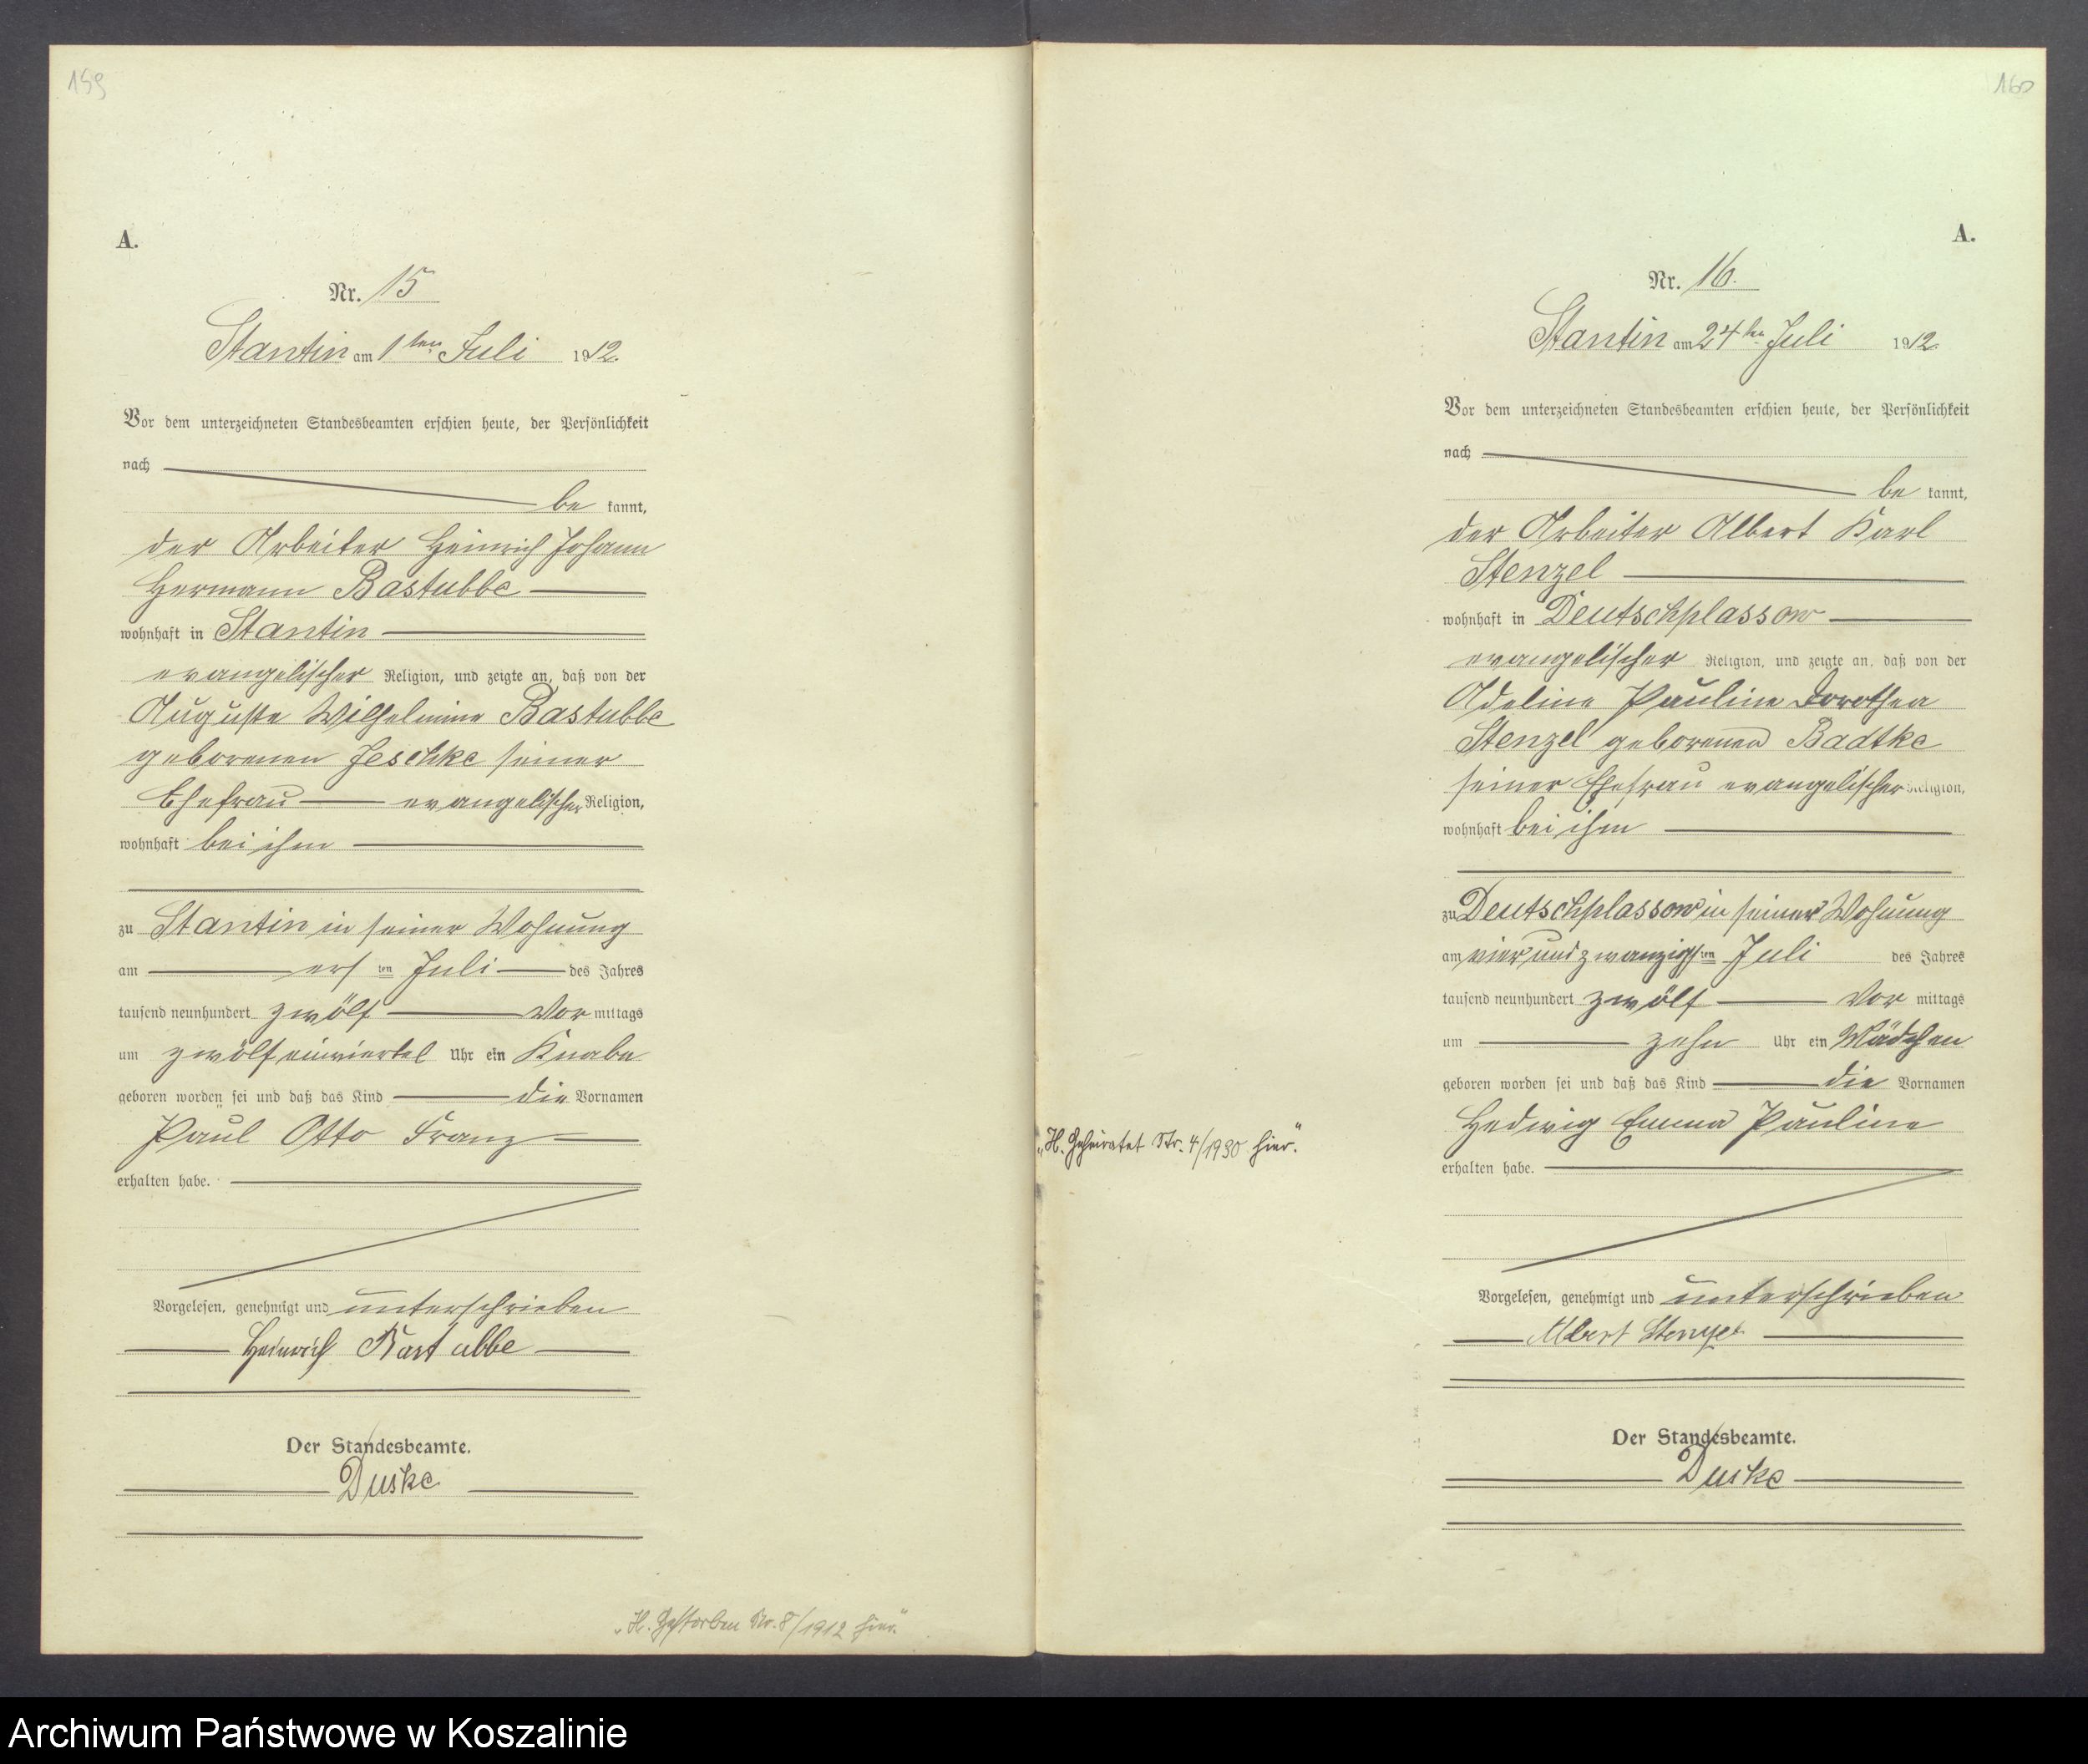 159
A.
Nr. 15
Stantin am 1ten Juli 1912.
Vor dem unterzeichneten Standesbeamten erschien heute, der Persönlichkeit
nach
be kannt,
der Arbeiter Heinrich Johann
Hermann Bastubbe
wohnhaft in Stantin
evangelischer Religion, und zeigte an, daß von der
Auguste Wilhelmine Bastubbe
geborenen Jeschke seiner
Ehefrau evangelischer Religion,
wohnhaft bei ihm
zu Stantin in seiner Wohnung
am ersten Juli des Jahres
tausend neunhundert zwölf Vor mittags
um zwölf einviertel Uhr ein Knabe
geboren worden sei und daß das Kind die Vornamen
Paul Otto Franz
erhalten habe.
Vorgelesen, genehmigt und unterschrieben
Heinrich Bastubbe
Der Standesbeamte.
Duske
„H. Gestorben Nr. 8/1912 hier."
160
A.
Nr. 16.
Stantin am 24ten Juli 1912.
Vor dem unterzeichneten Standesbeamten erschien heute, der Persönlichkeit
nach
be kannt,
der Arbeiter Albert Karl
Stenzel
wohnhaft in Deutschplassow
evangelischer Religion, und zeigte an, daß von der
Adeline Pauline Dorothea
Stenzel geborenen Badtke
seiner Ehefrau evangelischer Religion,
wohnhaft bei ihm
zu Deutschplassow in seiner Wohnung
am vier und zwanzigsten Juli des Jahres
tausend neunhundert zwölf Vor mittags
um zehn Uhr ein Mädchen
geboren worden sei und daß das Kind die Vornamen
Hedwig Emma Pauline
„H. Geheiratet Nr. 4/1930 hier."
erhalten habe.
Vorgelesen, genehmigt und unterschrieben
Albert Stenzel
Der Standesbeamte.
Duske
Archiwum Państwowe w Koszalinie